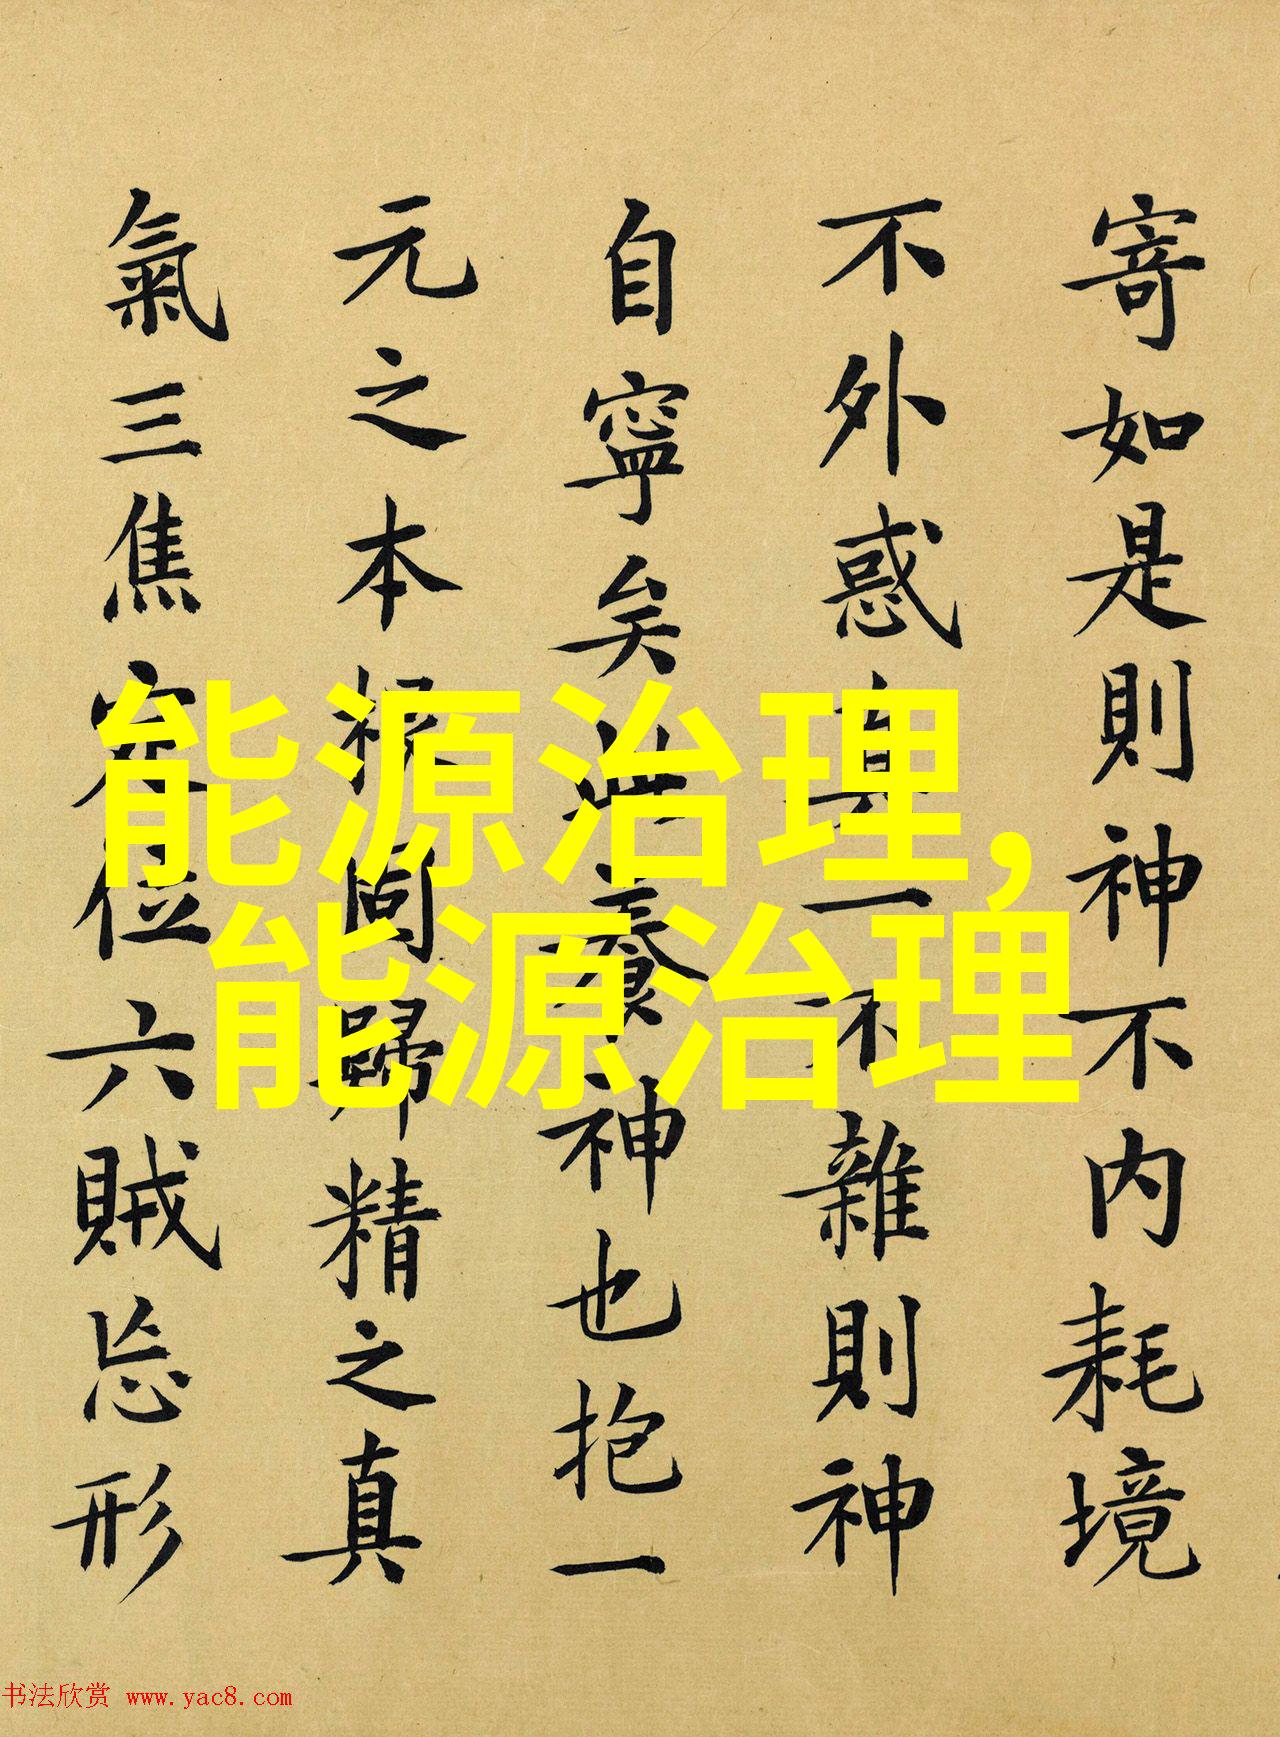 寄如是則神不内耗境
不外惑真一不雜則神
自寧矣此養神也抱一
元之本根固歸精之真
氣三焦定位六賊忘形
能源治理,
能源治理
书法欣赏 www.yac8.com